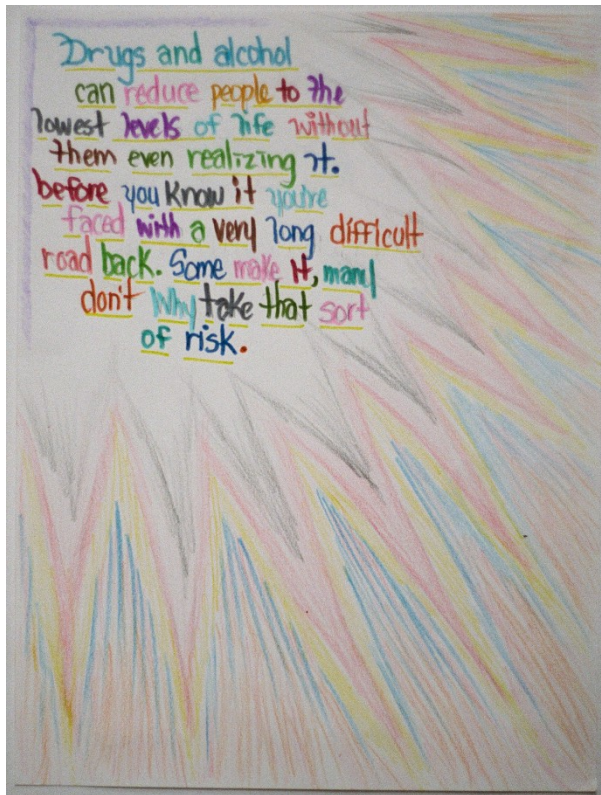 Drugs and alcohol
can reduce people to the
lowest levels of life without
them even realizing it.
before you know it you're
faced with a very long difficult
road back. Some make it, many
don't Why take that sort
of risk.